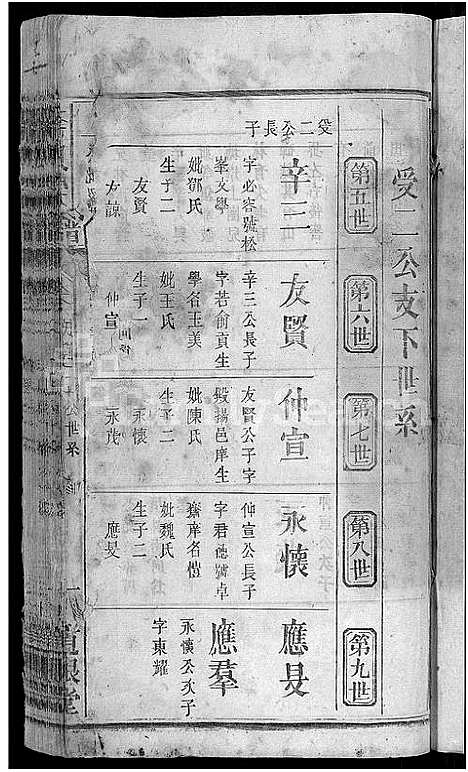 受二公支下世系
第五世
第六世
第七世
第八世
第九世
受二公長子
辛三
字必容號松
峯文學
妣鄧氏
生子二
友賢
友諒
友賢
辛三公長子
字若俞貢生
學名玉美
妣王氏
生子一
仲宣
仲宣
友賢公子字
毅揚邑庠生
妣陳氏
生子二
永懷
永茂
永懷
仲宣公長子
字君德號卓
齋庠名愷
妣魏氏
生子二
應旻
應旻
應羣
永懷公次子
字東耀